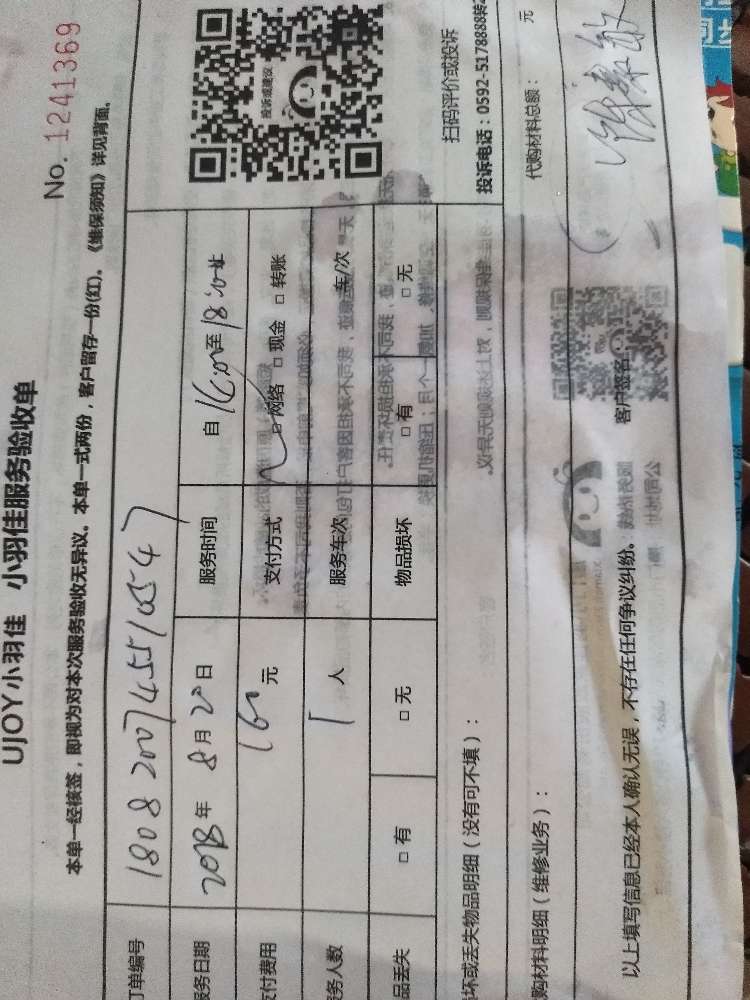 UJOY小羽佳 小羽佳服务验收单
No. 1241369
本单一经核签，即视为对本次服务验收无异议。本单一式两份，客户留存一份(红)。《维保须知》详见背面。
订单编号 18082007455105547
服务日期 2018年8月20日 服务时间 自16:00至18:00止
支付费用 160元 支付方式 □网络 □现金 □转账
服务人数 1人 服务车次 车/次
物品丢失 □有 □无 物品损坏 □有 □无
投诉或建议
扫码评价或投诉
投诉电话：0592-5178888转2
坏或丢失物品明细（没有可不填）：
购材料明细（维修业务）：
代购材料总额： 元
以上填写信息已经本人确认无误，不存在任何争议纠纷。
客户签名